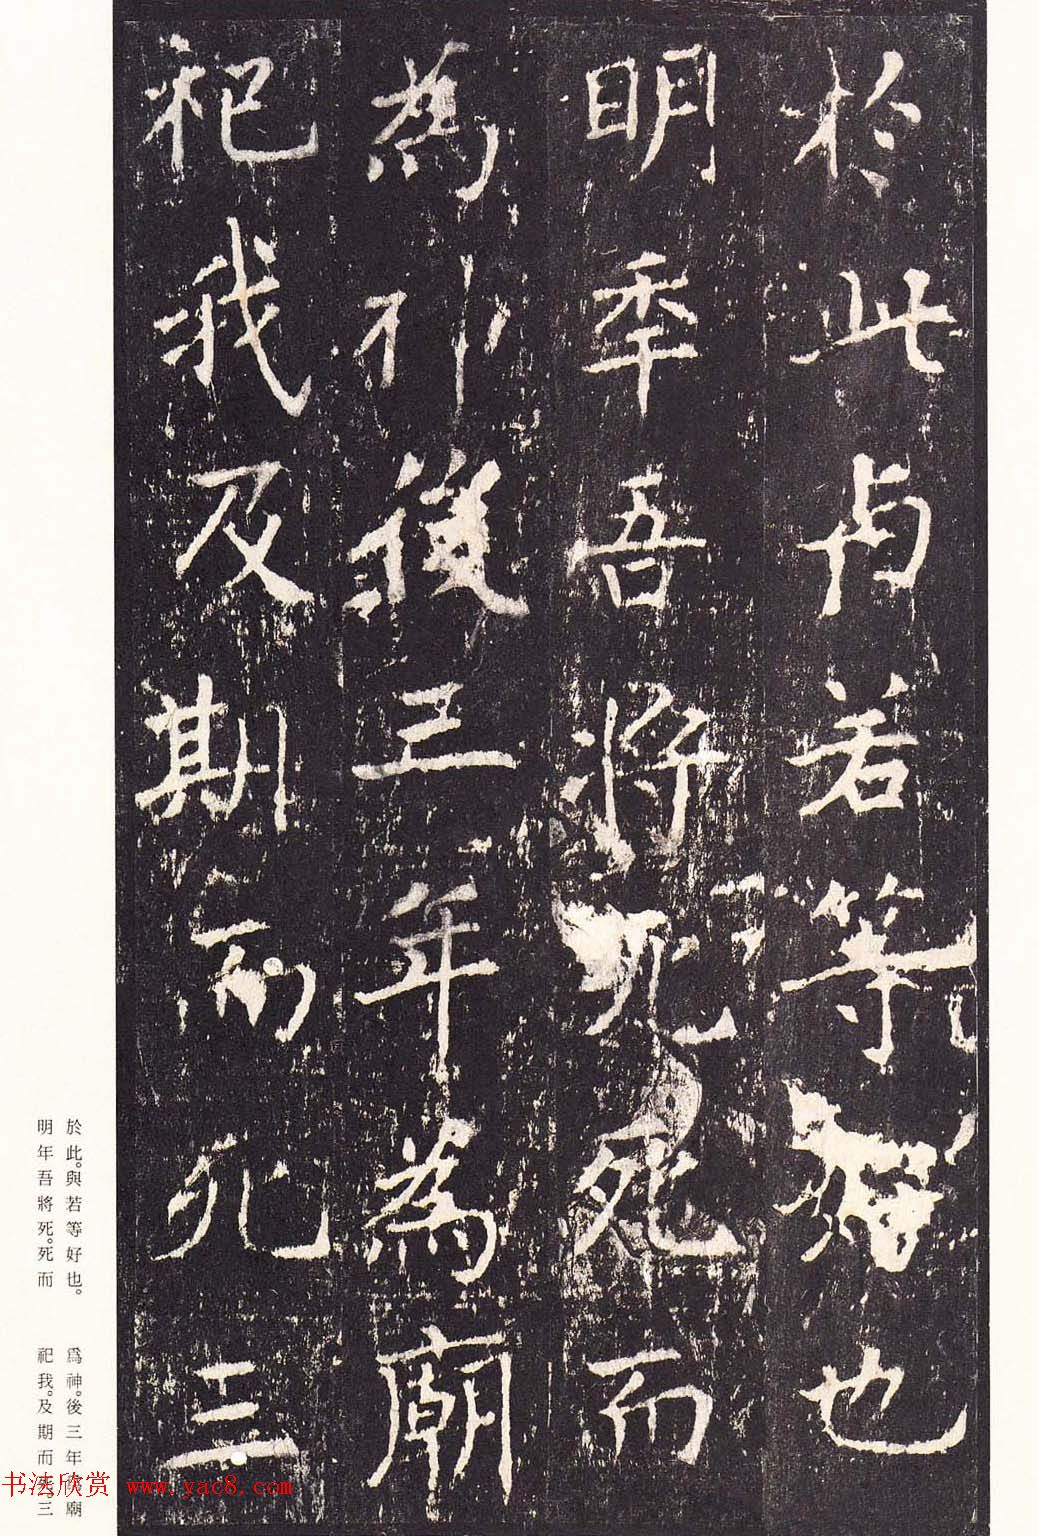 於此与若等好也
明年吾將死死而
為神後三年為廟
祀我及期而死三
於此。與若等好也。
明年吾將死。死而
爲神。後三年 廟
祀我。及期而死。三
书法欣赏 www.yac8.com